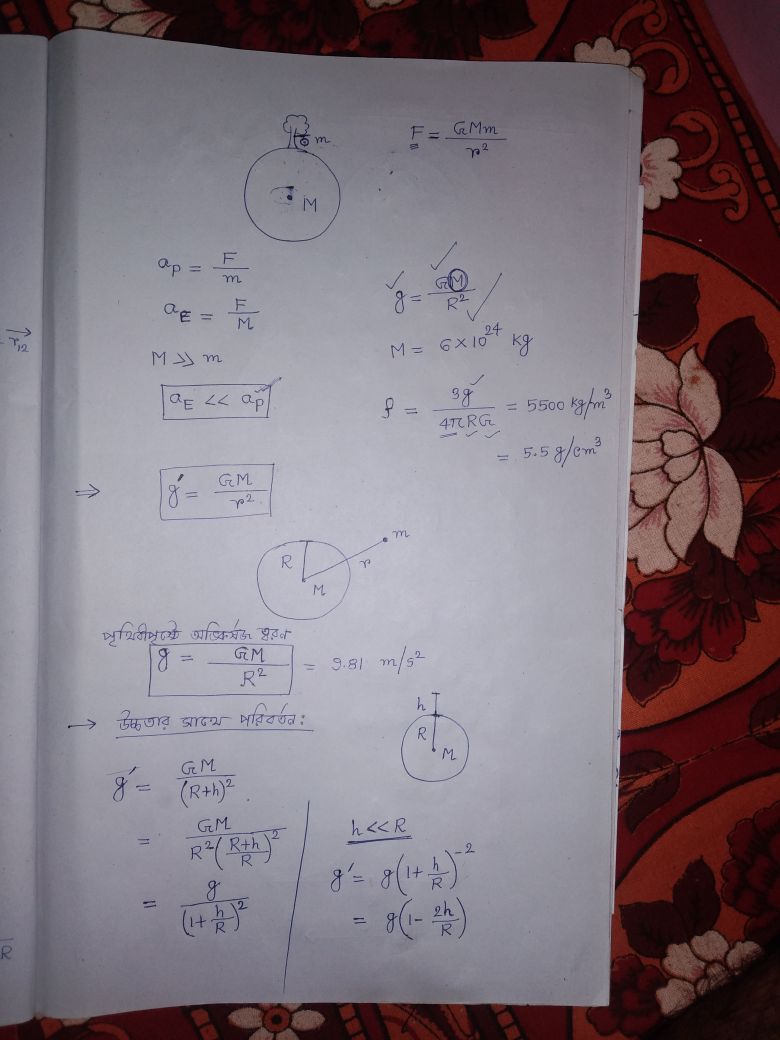 m
F = GMm/r²
M
a_P = F/m
a_E = F/M
M >> m
a_E << a_P
g = GM/R²
M = 6×10²⁴ kg
ρ = 3g/4πRG = 5500 kg/m³
= 5.5 g/cm³
r₁₂
⇒ g′ = GM/r²
R
M
r
m
পৃথিবীপৃষ্ঠে অভিকর্ষজ ত্বরণ
g = GM/R² = 9.81 m/s²
→ উচ্চতার সাথে পরিবর্তন:
h
R
M
g′ = GM/(R+h)²
= GM/R²((R+h)/R)²
= g/(1+h/R)²
h<<R
g′ = g(1+h/R)⁻²
= g(1-2h/R)
R